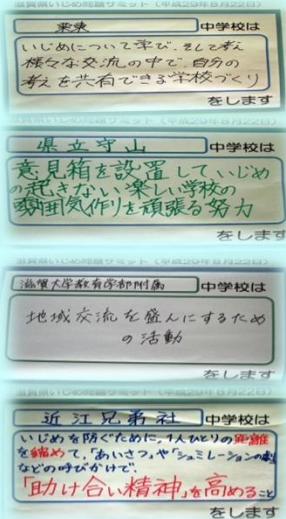 栗東 中学校は
いじめについて学び、そして考え
様々な交流の中で、自分の
考えを共有できる学校づくり
をします
滋賀県いじめ問題サミット（平成29年8月22日）
県立守山 中学校は
意見箱を設置していじめ
の起きない楽しい学校の
雰囲気作りを頑張る努力
をします
滋賀県いじめ問題サミット（平成29年8月22日）
滋賀大学教育学部附属 中学校は
地域交流を盛んにするため
の活動
をします
滋賀県いじめ問題サミット（平成29年8月22日）
近江兄弟社 中学校は
いじめを防ぐために、1人ひとりの距離
を縮めて、「あいさつ」や「シュミレーションの劇」
などの呼びかけで、
「助け合い精神」を高めること
をします